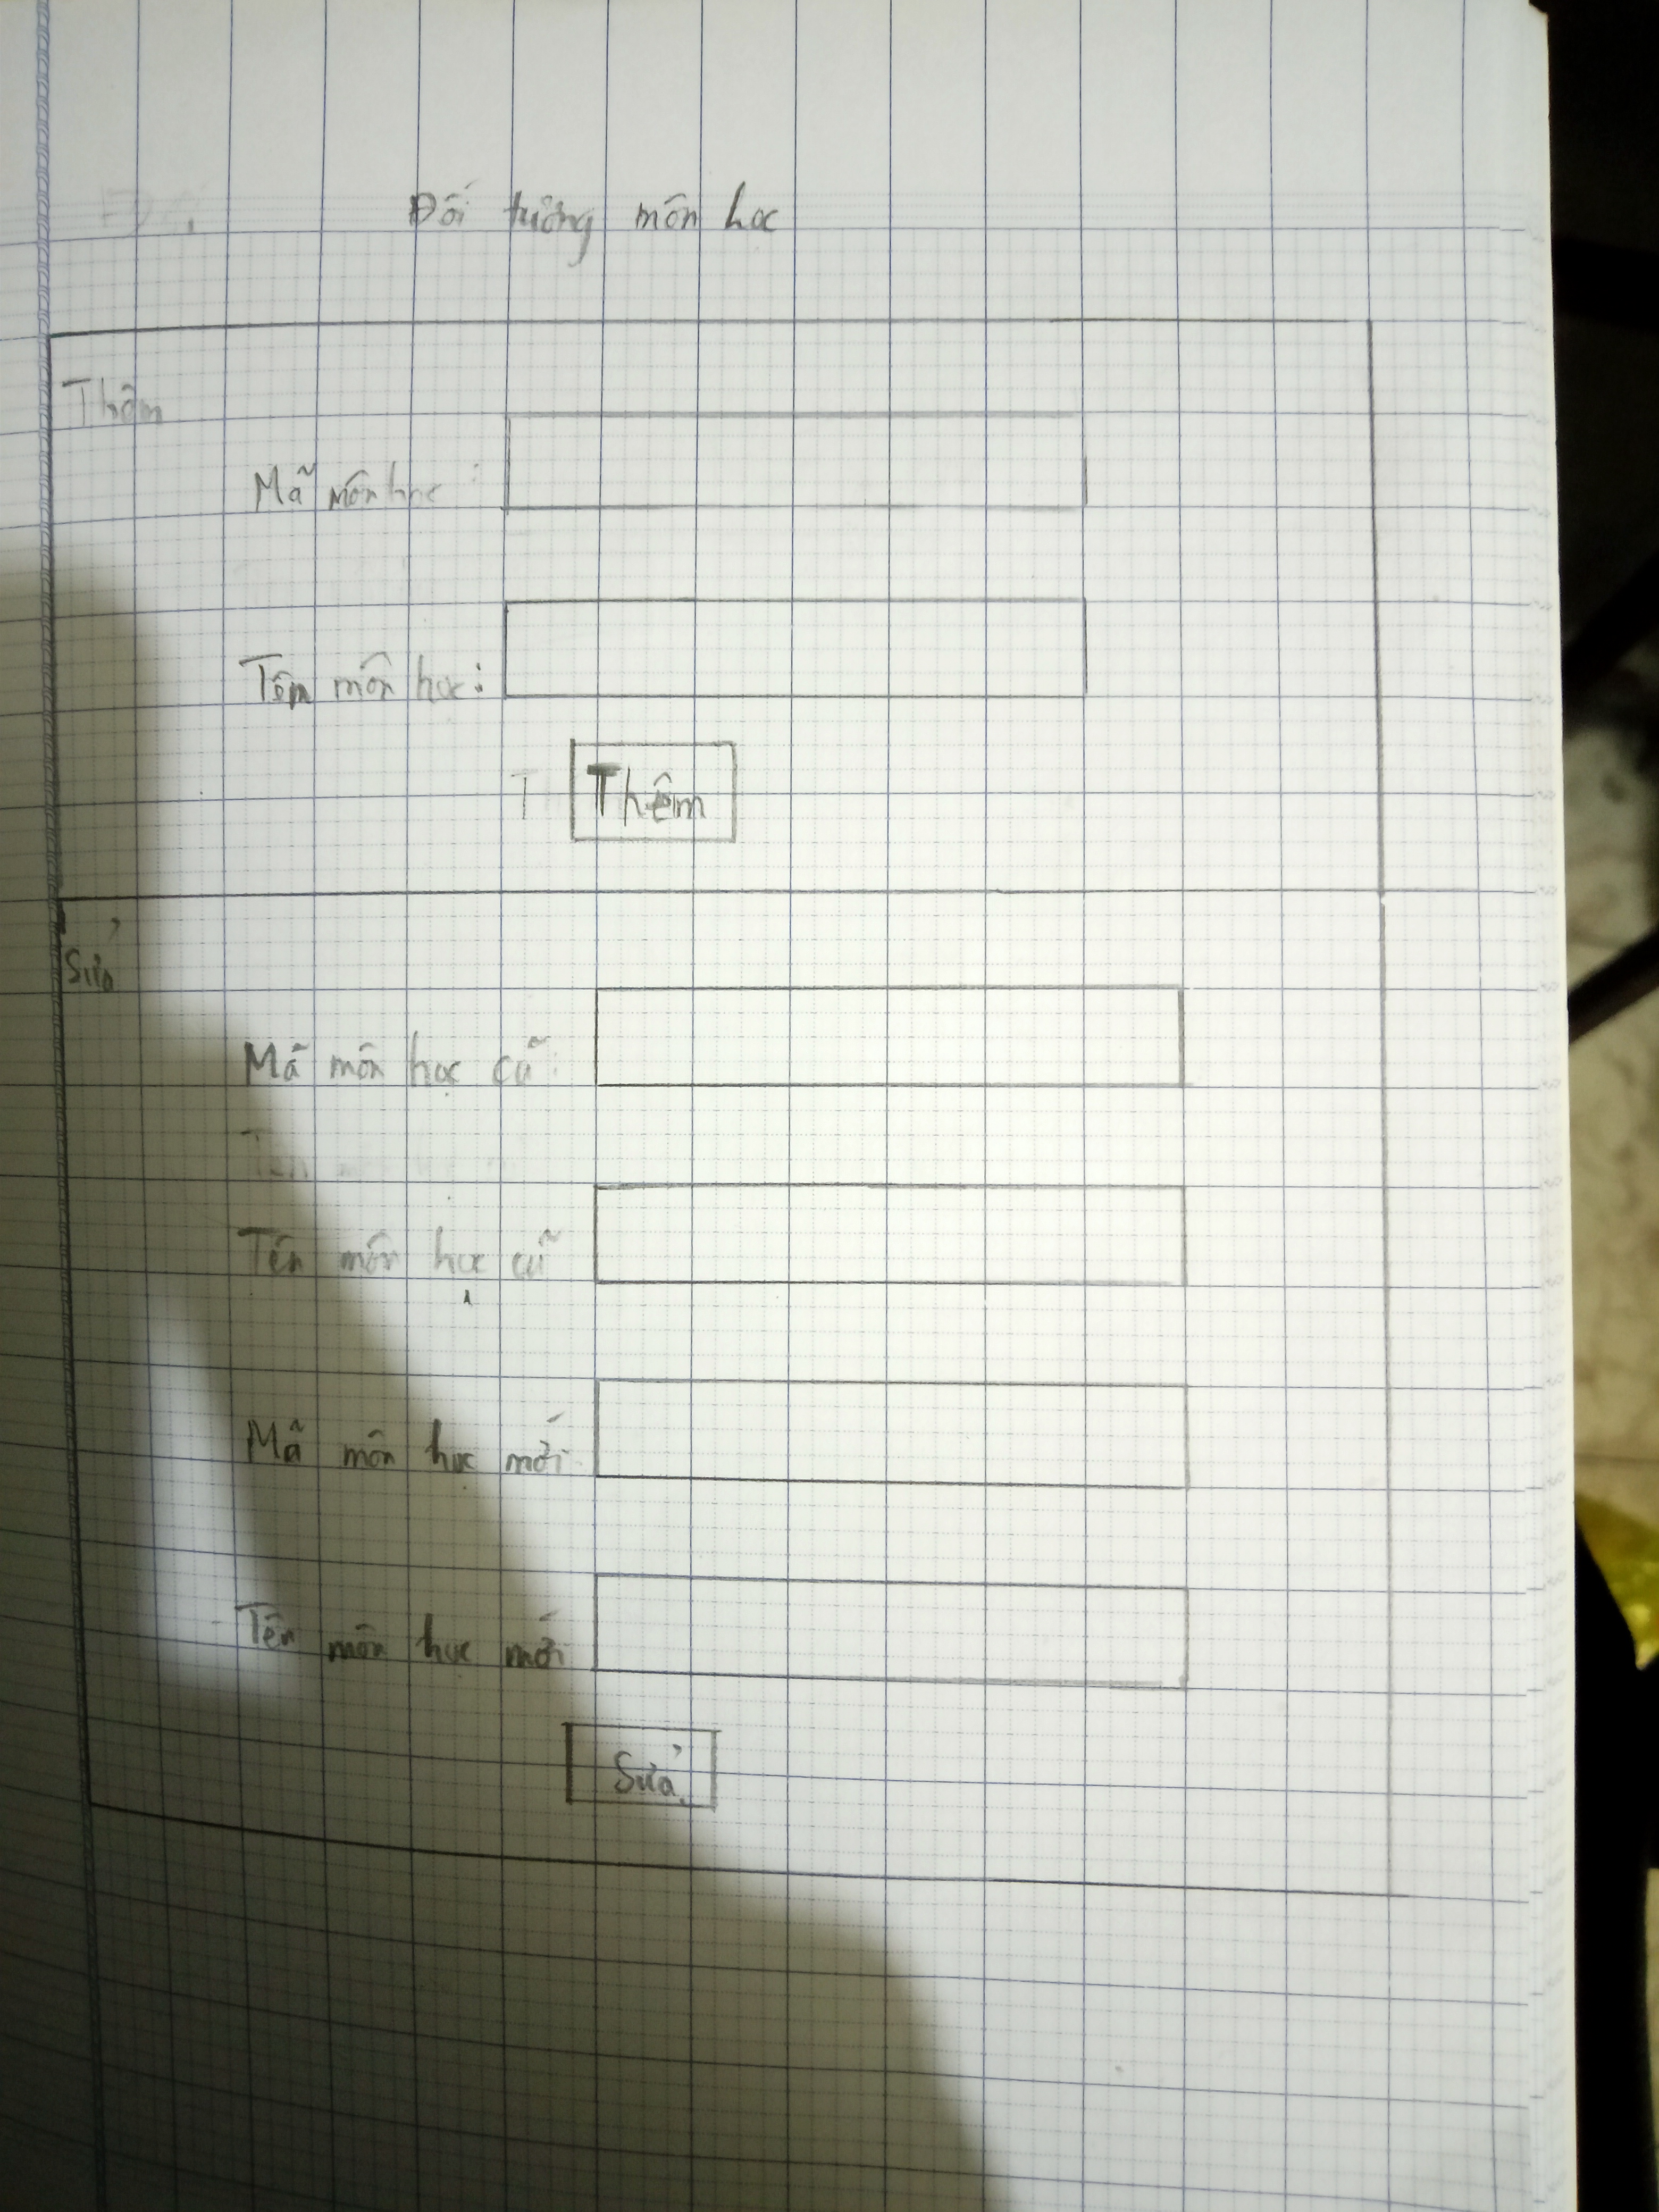 Đối tượng môn học
Thêm
Mã môn học :
Tên môn học :
T
Thêm
Sửa
Mã môn học cũ :
Tên
Tên môn học cũ
Mã môn học mới
Tên môn học mới
Sửa